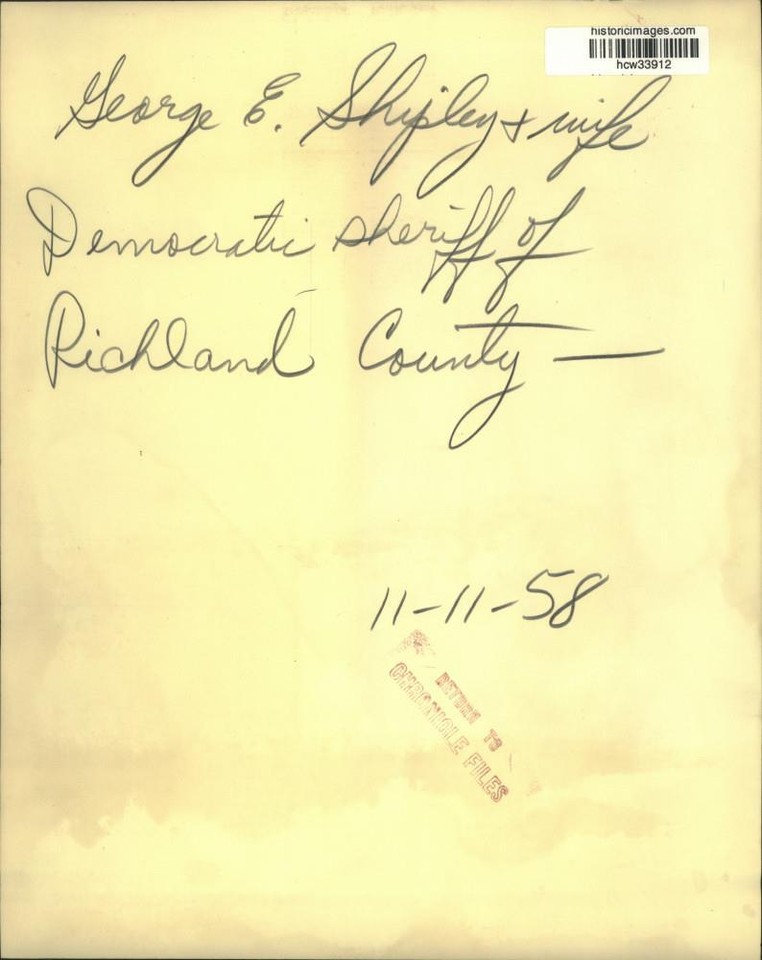 historicimages.com
hcw33912
George E. Shipley + wife
Democratic sheriff of
Richland County —
11-11-58
RETURN TO
CHRONICLE FILES